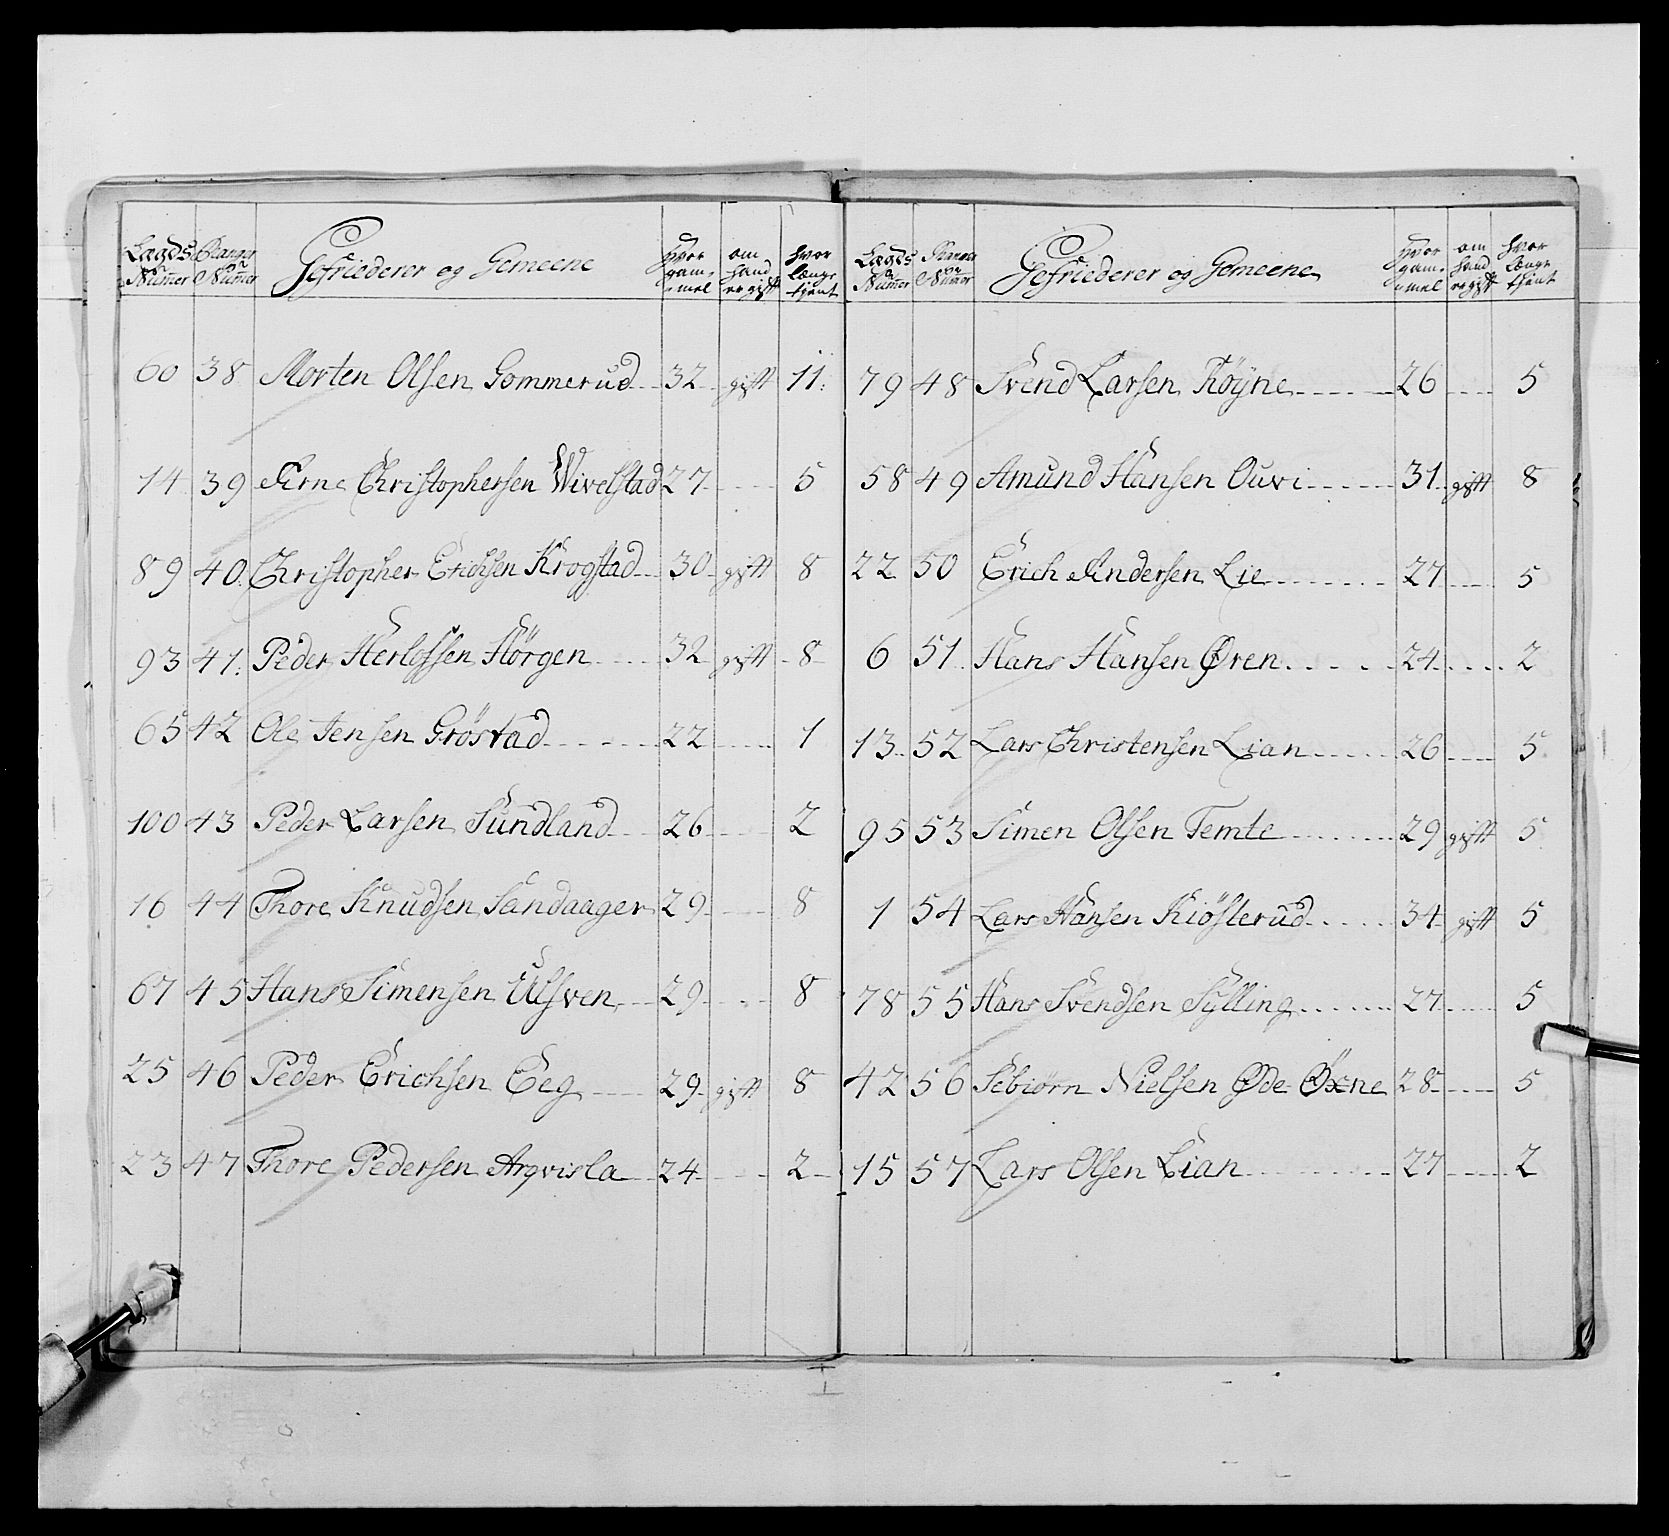 Lægds Nummer | Rangs Nummer | Gefriederer og Gemeene | Hvor gam-mel | om hand er gift | hvor længe tient
60 | 38 | Morten Olsen Gommerud | 32 | gift | 11
14 | 39 | Arne Christophersen Wivelstad | 27 | | 5
89 | 40 | Christopher Erichsen Krogstad | 30 | gift | 8
93 | 41 | Peder Herlofsen Hörgen | 32 | gift | 8
65 | 42 | Ole Jensen Gröstad | 22 | | 1
100 | 43 | Peder Larsen Sundland | 26 | | 2
16 | 44 | Thore Knudsen Sandaager | 29 | | 8
67 | 45 | Hans Simensen Ulsven | 29 | | 8
25 | 46 | Peder Erichsen Eeg | 29 | gift | 8
23 | 47 | Thore Pedersen Arqvisla | 24 | | 2
Lægds Nummer | Rangs Nummer | Gefriederer og Gemeene | Hvor gam-mel | om hand er gift | hvor længe tient
79 | 48 | Svend Larsen Röyne | 26 | | 5
58 | 49 | Amund Hansen Ouvi | 31 | gift | 8
22 | 50 | Erich Andersen Lie | 27 | | 5
6 | 51 | Hans Hansen Øren | 24 | | 2
13 | 52 | Lars Christensen Lian | 26 | | 5
95 | 53 | Simen Olsen Temte | 29 | gift | 5
1 | 54 | Lars Hansen Kiösterud | 34 | gift | 5
78 | 55 | Hans Svendsen Sylling | 27 | | 5
42 | 56 | Sebiörn Nielsen Øde Øxne | 28 | | 5
15 | 57 | Lars Olsen Lian | 27 | | 2